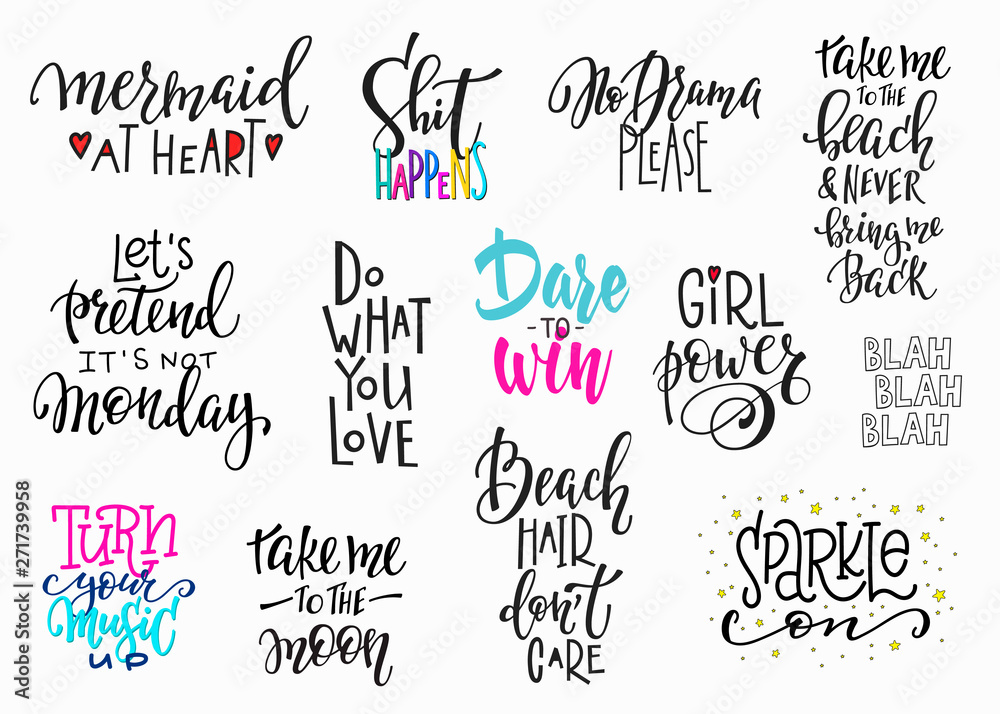 mermaid
AT HEART
Shit
HAPPENS
No Drama
PLEASE
take me
TO THE
beach
& NEVER
bring me
Back
Let's
pretend
IT'S NOT
Monday
DO
WHAT
YOU
LOVE
Dare
-TO-
win
GiRL
power
BLAH
BLAH
BLAH
TURN
your
music
UP
take me
TO THE
moon
Beach
HAIR
don't
CARE
SPARKLE
on
Adobe Stock | #271739958